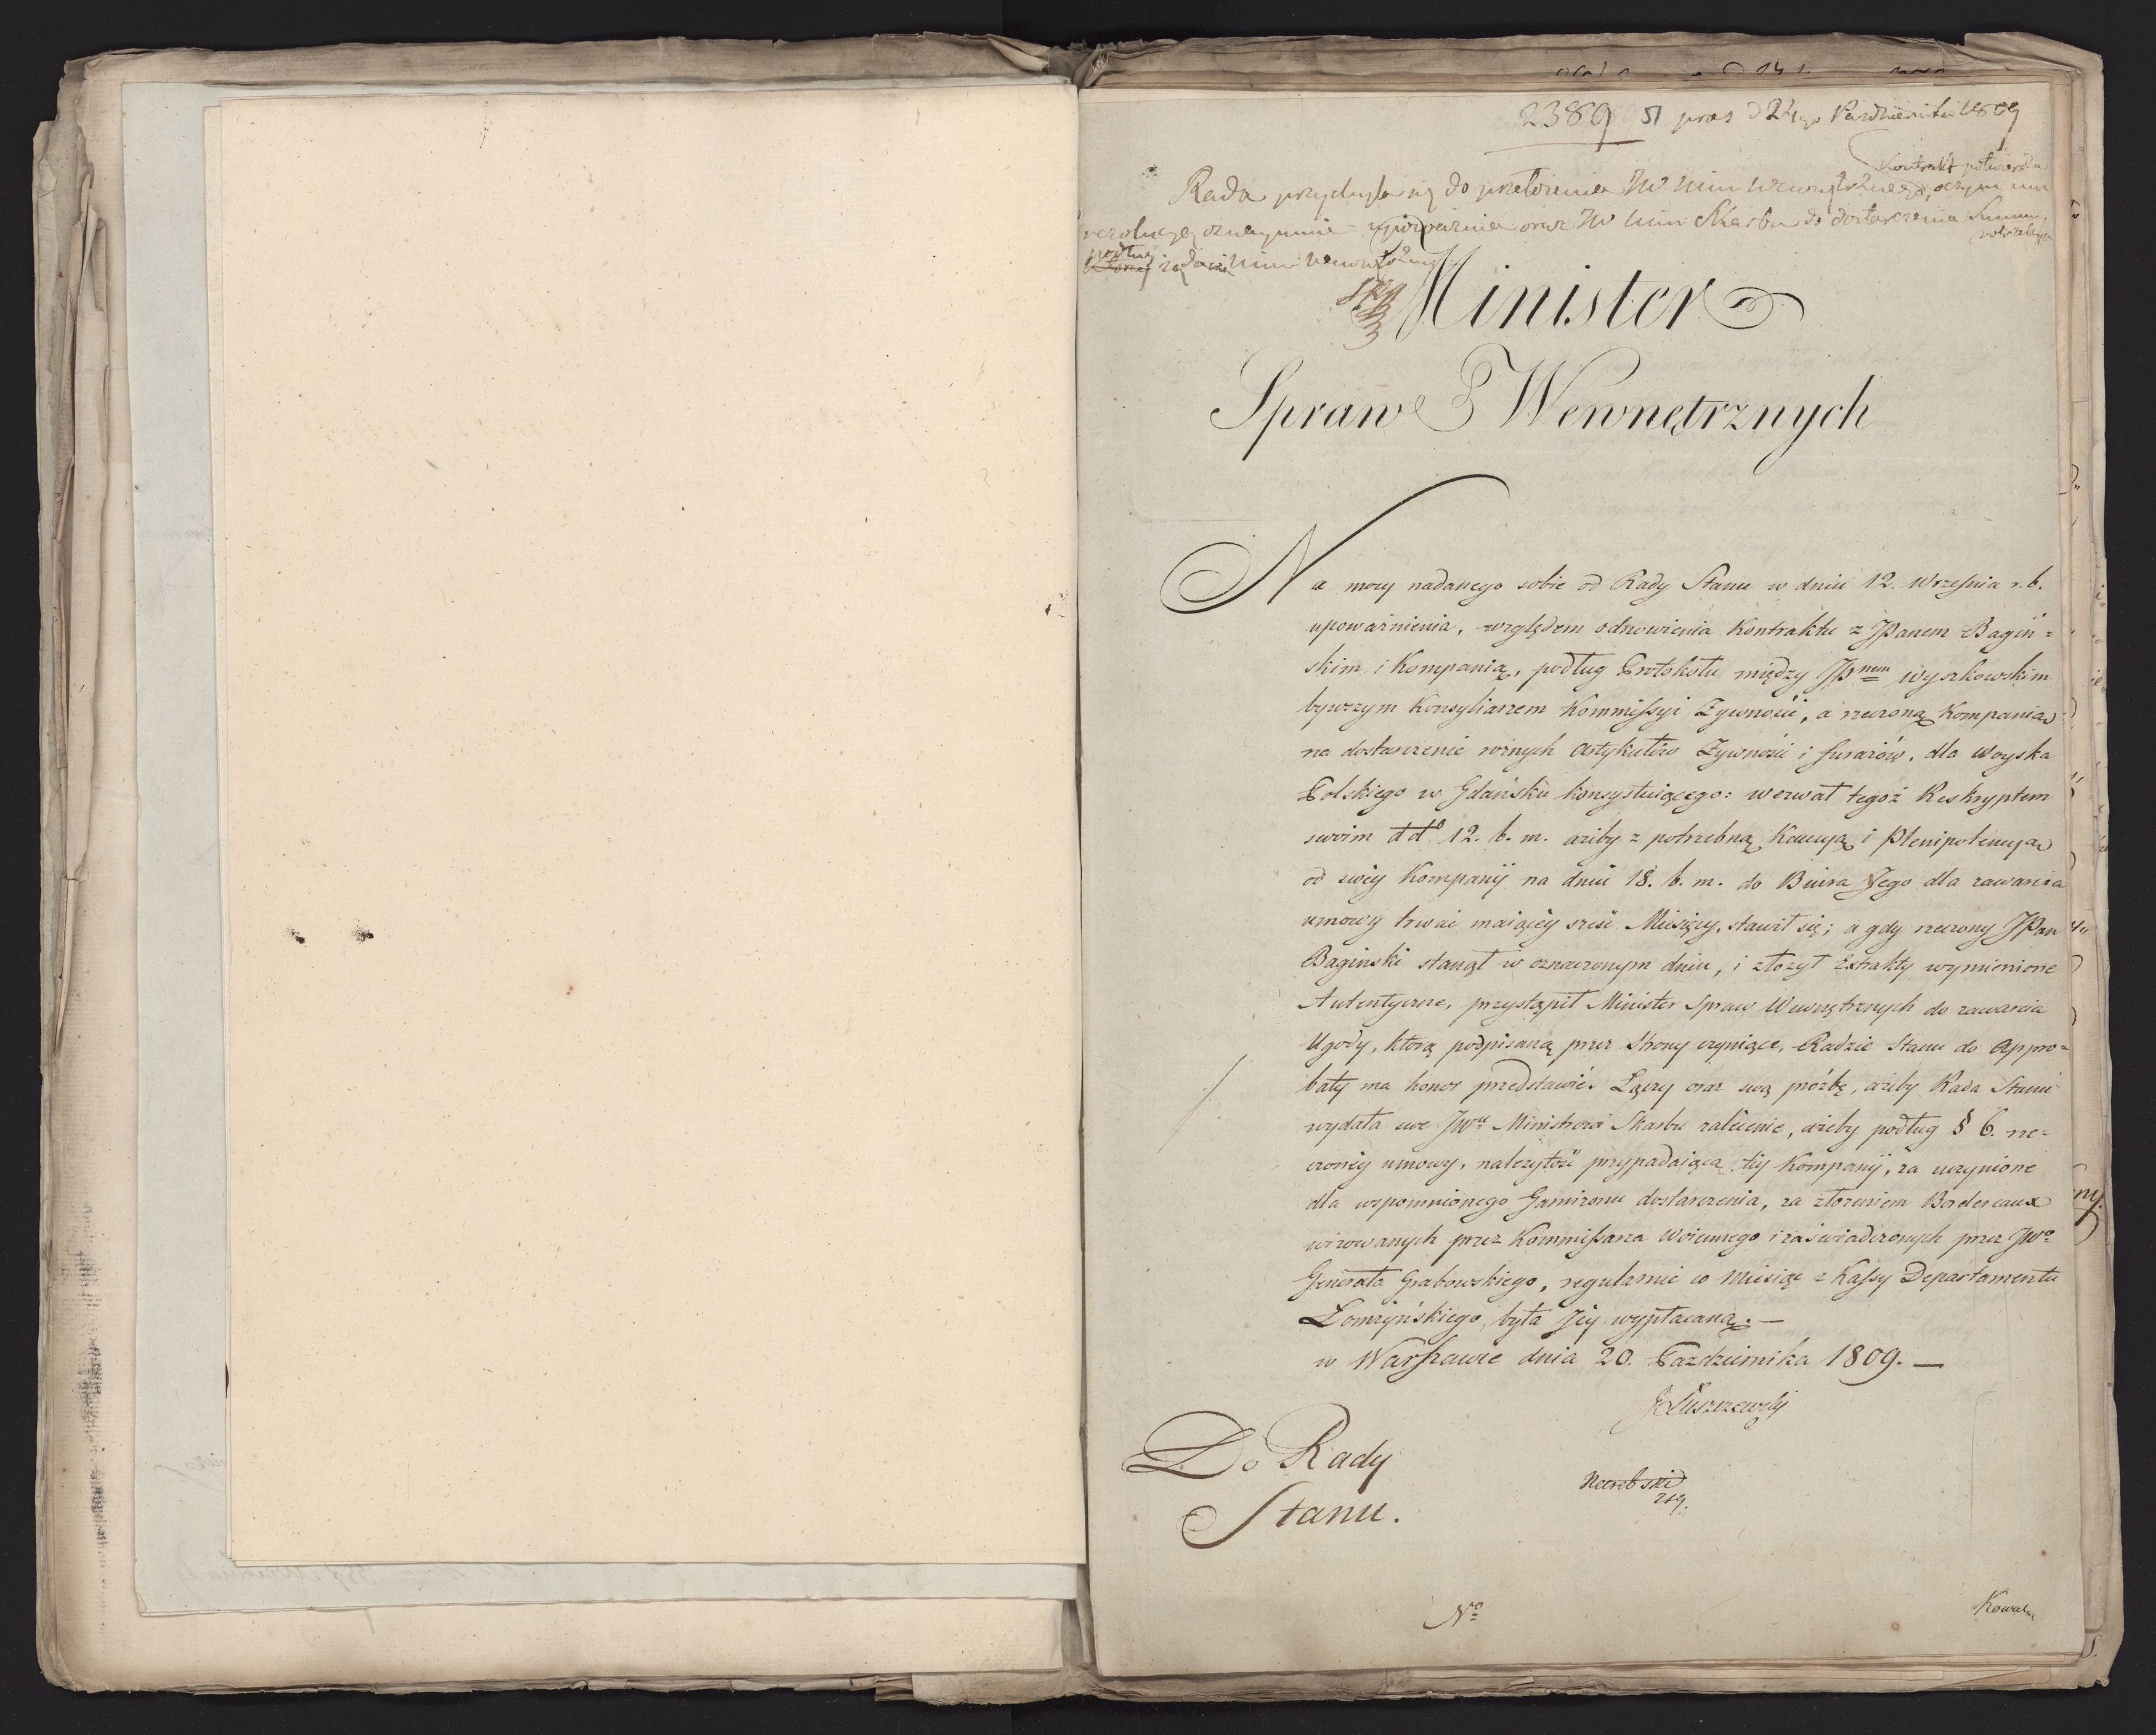 2389 51 pras d 24go Pazdziernika 1809
Kontrakt potwierdza
Rada przychyla się do przełożenia JW Min Wewnętrznego, o czym mu
rezolucyę oznaymuie oraz JW Min Skarbu do dostarczenia Summ,
potrzebnych
podług żądania Mini Wewnętrznych
Minister
Spraw Wewnętrznych
Na mocy nadanego sobie od Rady Stanu w dniu 12. Września r.b.
upoważnienia, względem odnowienia Kontraktu z JPanem Bagiń=
skim i Kompanią, podług Protokołu między JPnem Wyszkowskim
bywszym Konsyliarzem Kommissyi Żywności, a rzeczoną Kompanią
na dostarczenie rożnych Artykułów Żywności i furażów, dla Woyska
Polskiego w Gdańsku konsystuiącego: wezwał tegoż Reskryptem
swoim dd° 12. b. m. ażeby z potrzebną Kaucyą i Plenipotencyą
od swéy Kompanÿ na dniu 18. b. m. do Biura Jego dla zawarcia
umowy trwać maiącéy sześć Miesięcy, stawił się; a gdy rzeczony JPan
Baginski stanął w oznaczonym dniu, i złożył Extrakty wymienione
Autentyczne, przystąpił Minister Spraw Wewnętrznych do zawarcia
Ugody, którą podpisaną przez Strony czyniące, Radzie Stanu do Appro=
baty ma honor przedstawić. Łączy oraz swą prośbę, ażeby Rada Stanu
wydała swe JWu Ministrowi Skarbu zalécenie, ażeby podług § 6. rze=
czonéy umowy, należytość przypadaiąca téy Kompanÿ, za uczynione
dla wspomnionego Garnizonu dostarczenia, za złożeniem Bordereaux
wizowanych przez Kommissarza Woiennego i zaświadczonych przez JWo
Generała Grabowskiego, regularnie co Miesiąc z Kassy Departamentu
Łomżyńskiego, była Jéy wypłacaną. —
w Warszawie dnia 20. Pazdziernika 1809. —
J Łuszczewski
Do Rady
Stanu.
No